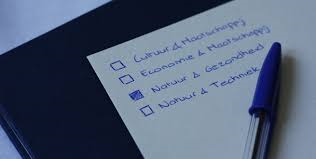 Cultuur & Maatschappij
Economie & Maatschappij
Natuur & Gezondheid
Natuur & Techniek